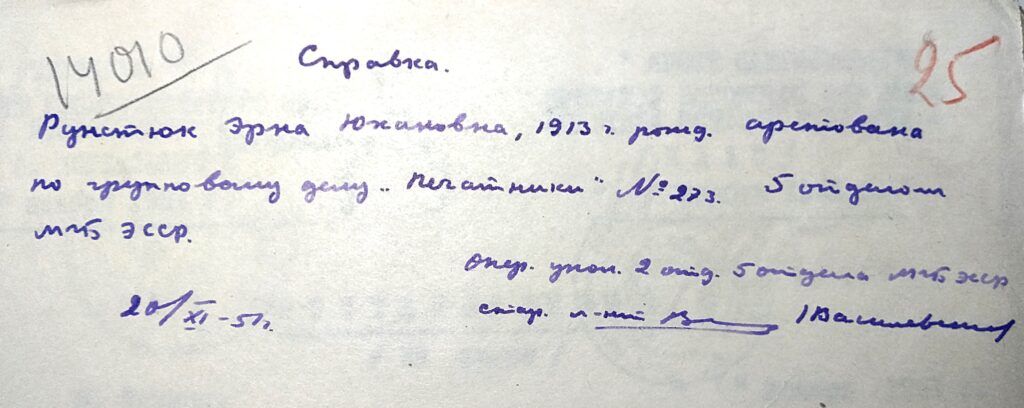 14010
Справка.
25
Рунстюк Эрна Юхановна, 1913 г. рожд. арестована
по групповому делу „Печатники“ № 273. 5 отделом
МГБ ЭССР.
Опер. упол. 2 отд. 5 отдела МГБ ЭССР
20/XI-51г.
стар. л-нт /Василевский/